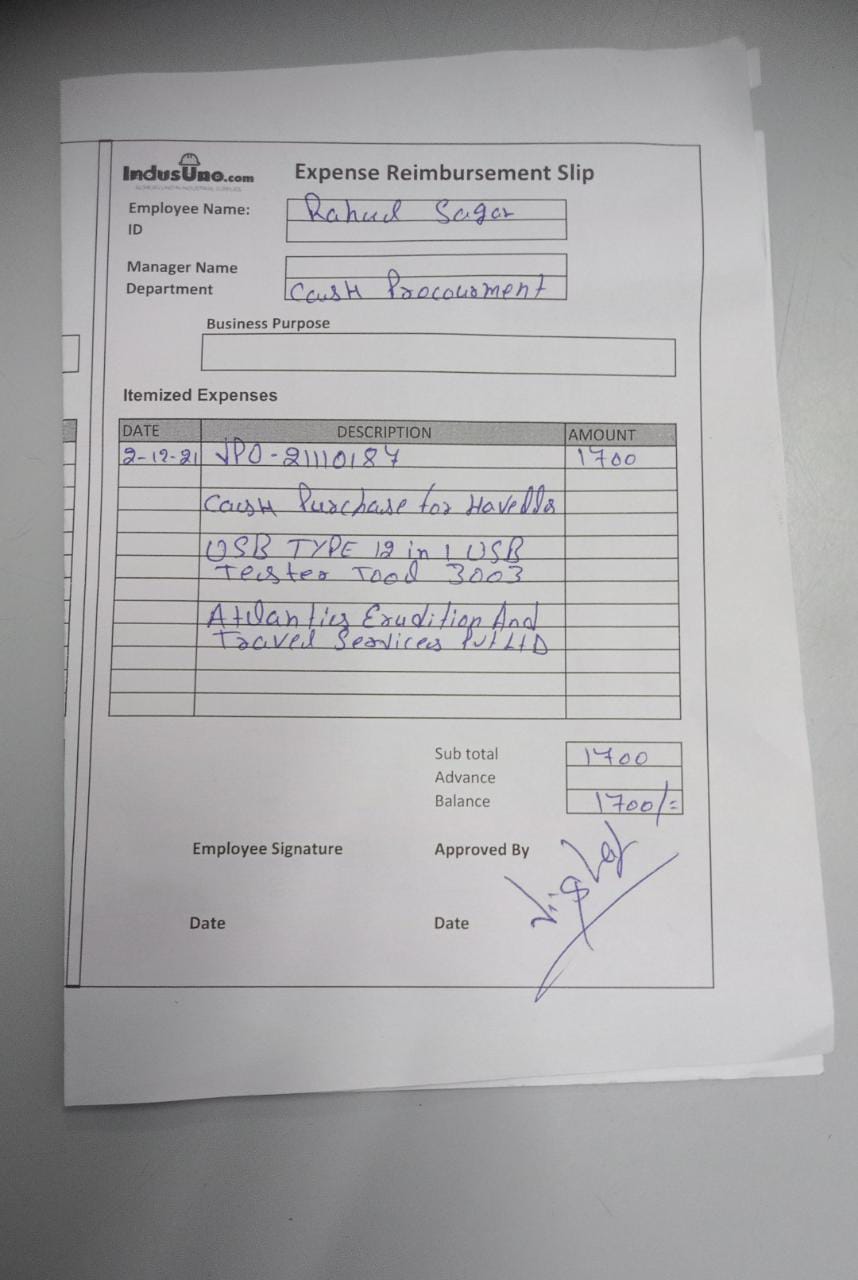 IndusUno.com
Expense Reimbursement Slip
Employee Name:
Rahul Sagar
ID
Manager Name
Department
Cash Procourment
Business Purpose
Itemized Expenses
DATE DESCRIPTION AMOUNT
2-12-21 VPO-21110187 1700
Cash Purchase for Havells
USB TYPE 12 in 1 USB
Tester Tool 3003
Atlantics Erudition And
Travel Services Pvt LtD
Sub total 1700
Advance
Balance 1700/=
Employee Signature
Approved By
Date
Date